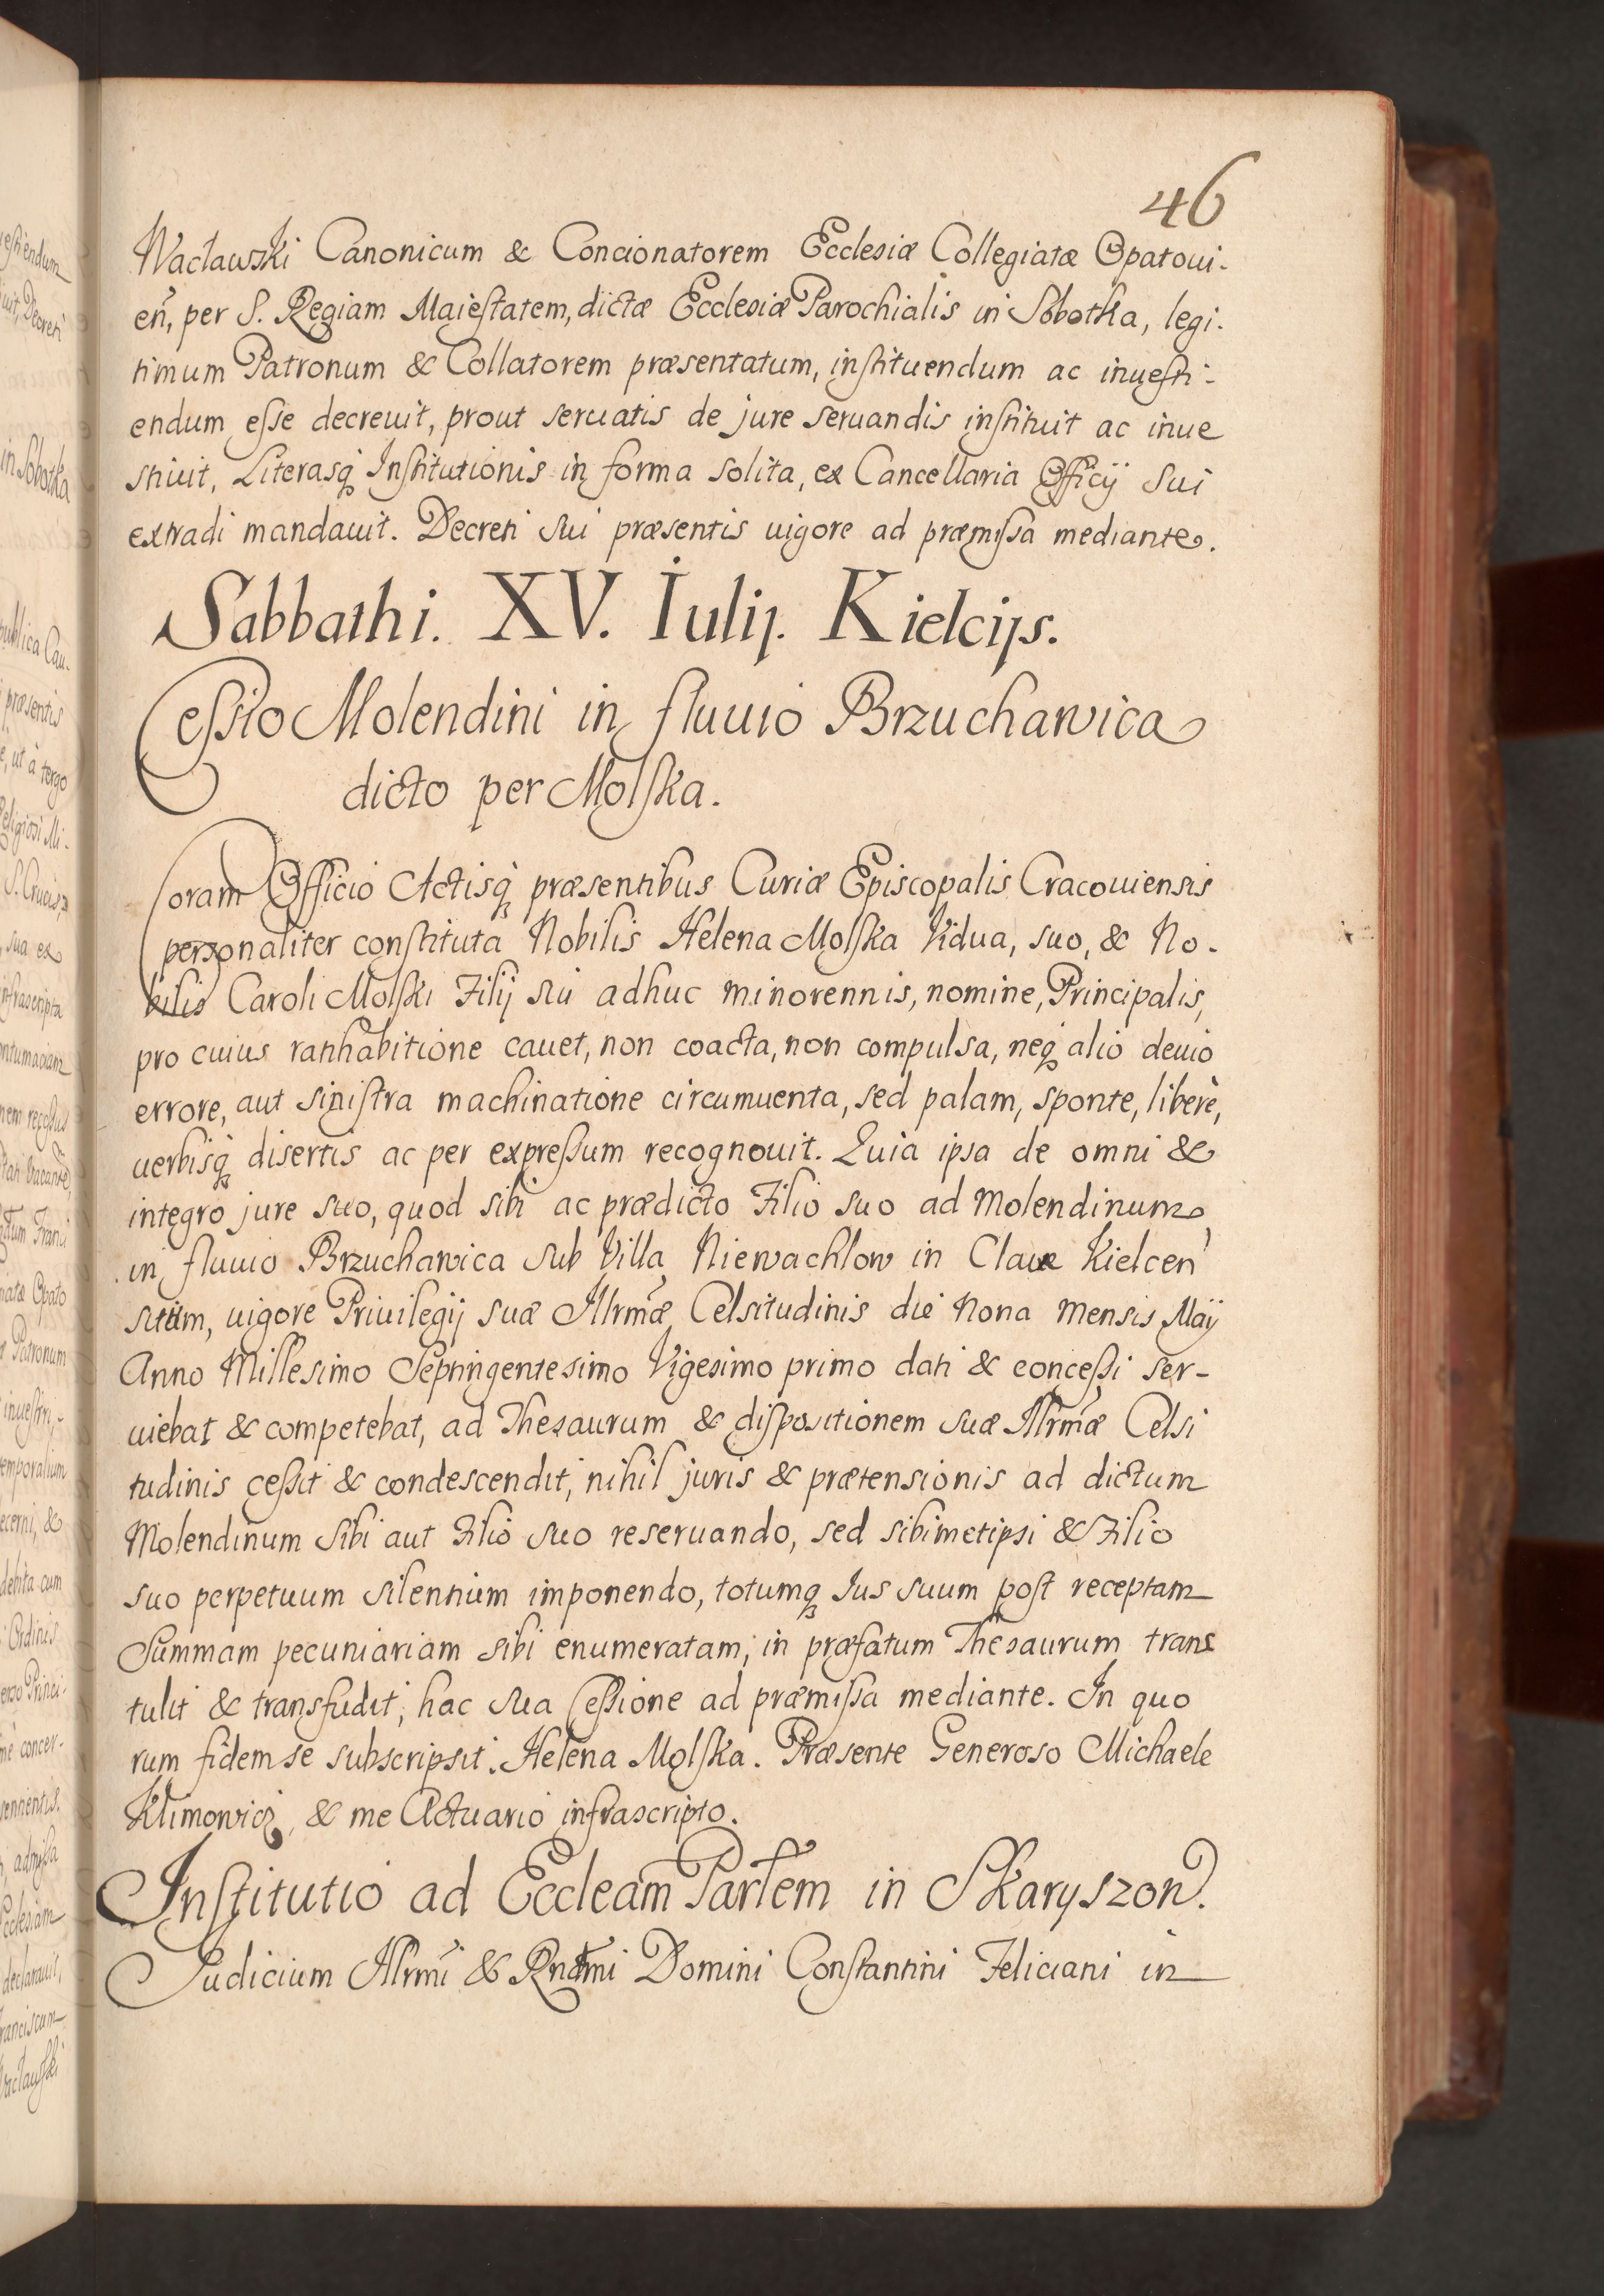 46
Wacławski Canonicum & Concionatorem Ecclesiæ Collegiatæ Opatoui-
eñ, per S. Regiam Maiestatem, dictæ Ecclesiæ Parochialis in Sobotka, legi-
timum Patronum & Collatorem præsentatum, instituendum ac inuesti-
endum esse decreuit, prout seruatis de jure seruandis instituit ac inue
stiuit, Literasq₃ Institutionis in forma solita, ex Cancellaria Officÿ Sui
extradi mandauit. Decreti sui præsentis uigore ad præmissa mediante.
Sabbathi. XV. Iulij. Kielcijs.
Cessio Molendini in fluuio Brzuchawica
dicto per Molska.
Coram Officio Actisq₃ præsentibus Curiæ Episcopalis Cracouiensis
personaliter constituta Nobilis Helena Molska Vidua, suo, & No-
bilis Caroli Molski Filij sui adhuc minorennis, nomine, Principalis,
pro cuius ratihabitione cauet, non coacta, non compulsa, neq₃ alio deuio
errore, aut sinistra machinatione circumuenta, sed palam, sponte, liberè,
uerbisq₃ disertis ac per expressum recognouit. Quia ipsa de omni &
integro jure suo, quod sibi ac prædicto Filio suo ad Molendinum
in fluuio Brzuchawica sub Villa Niewachlow in Claue Kielcen
situm, uigore Priuilegij suæ Illrmæ Celsitudinis die Nona Mensis Maÿ
Anno Millesimo Septingentesimo Vigesimo primo dati & concessi ser-
uiebat & competebat, ad Thesaurum & dispositionem suæ Illrmæ Celsi
tudinis cessit & condescendit, nihil juris & prætensionis ad dictum
Molendinum sibi aut Filio suo reseruando, sed sibimetipsi & Filio
suo perpetuum silentium imponendo, totumq₃ Ius suum post receptam
Summam pecuniariam sibi enumeratam, in præfatum Thesaurum trans
tulit & transfudit, hac sua Cessione ad præmissa mediante. In quo
rum fidem se subscripsit. Helena Molska. Præsente Generoso Michaele
Klimowicz, & me Actuario infrascripto.
Institutio ad Eccleam Parlem in Skaryszow.
Judicium Illrmi & Rndmi Domini Constantini Feliciani in